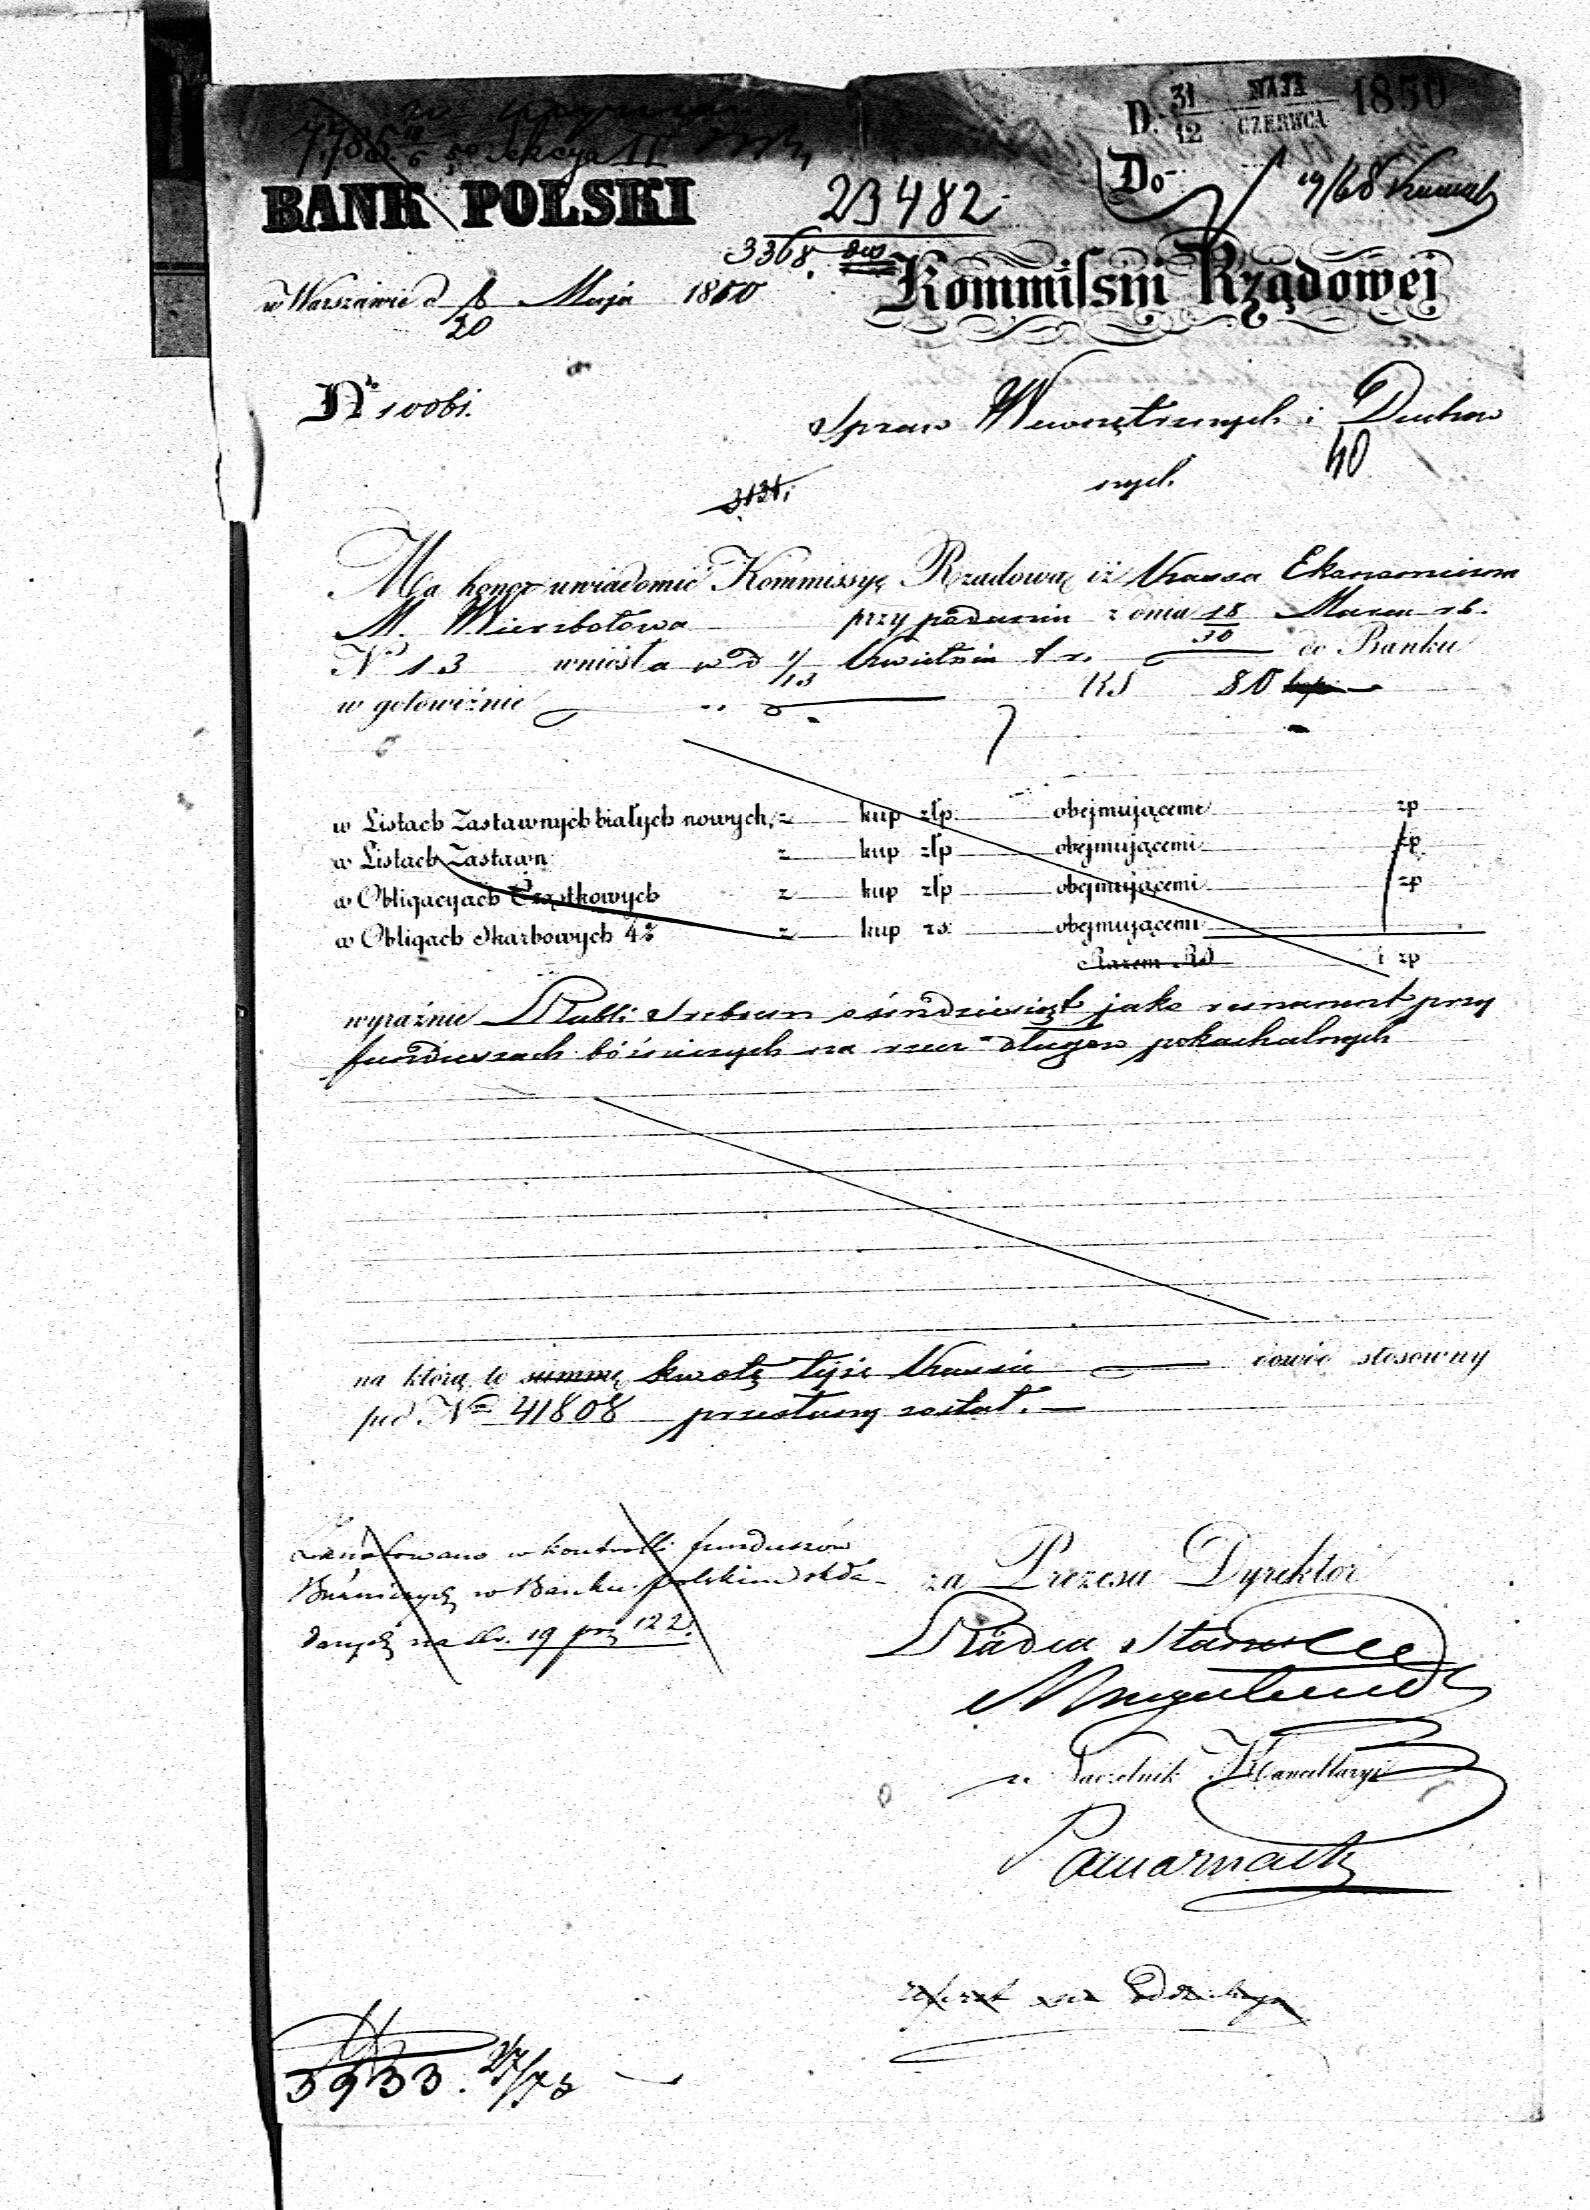 D. 31/12 MAJA/CZERWCA 1850
Sekcya II
BANK POLSKI
23482
Do
3368.
Kommissyi Rządowej
w Warszawie d 8/20 Maja 1850
No 10061.
Spraw Wewnętrznych i Duchow
40
nych.
Ma honor uwiadomić Kommissyę Rządową iż Kassa Ekonomiczna
M. Wierzbołowa przy podaniu z dnia 18/30 Marca r.b.
No 13 wniosła w d 1/13 Kwietnia t r. do Banku
w gotowiźnie RS 80 kop
w Listach Zastawnych białych nowych, z kup złp. obejmującemi zp
w Listach Zastawn z kup złp obejmującemi zp
w Obligacyach Cząstkowych z kup złp obejmującemi zp
w Obligach Skarbowych 4% z kup rs. obejmującemi
Razem RS i zp
wyraźnie Rubli Srebrem ośmdziesiąt jako remanent przy
funduszach bóżniczych na rzecz długów pokachalnych
na którą to summę kwotę tejże Kassie dowód stosowny
pod No 41808 przesłany został.
Zanotowano w kontrolli funduszów
Bóżniczych w Banku polskim skła-
danych na str. 19 poz 122.
za Prezesa Dyrektor
Radca Stanu
Naczelnik Kancellaryi
3933. 27/73